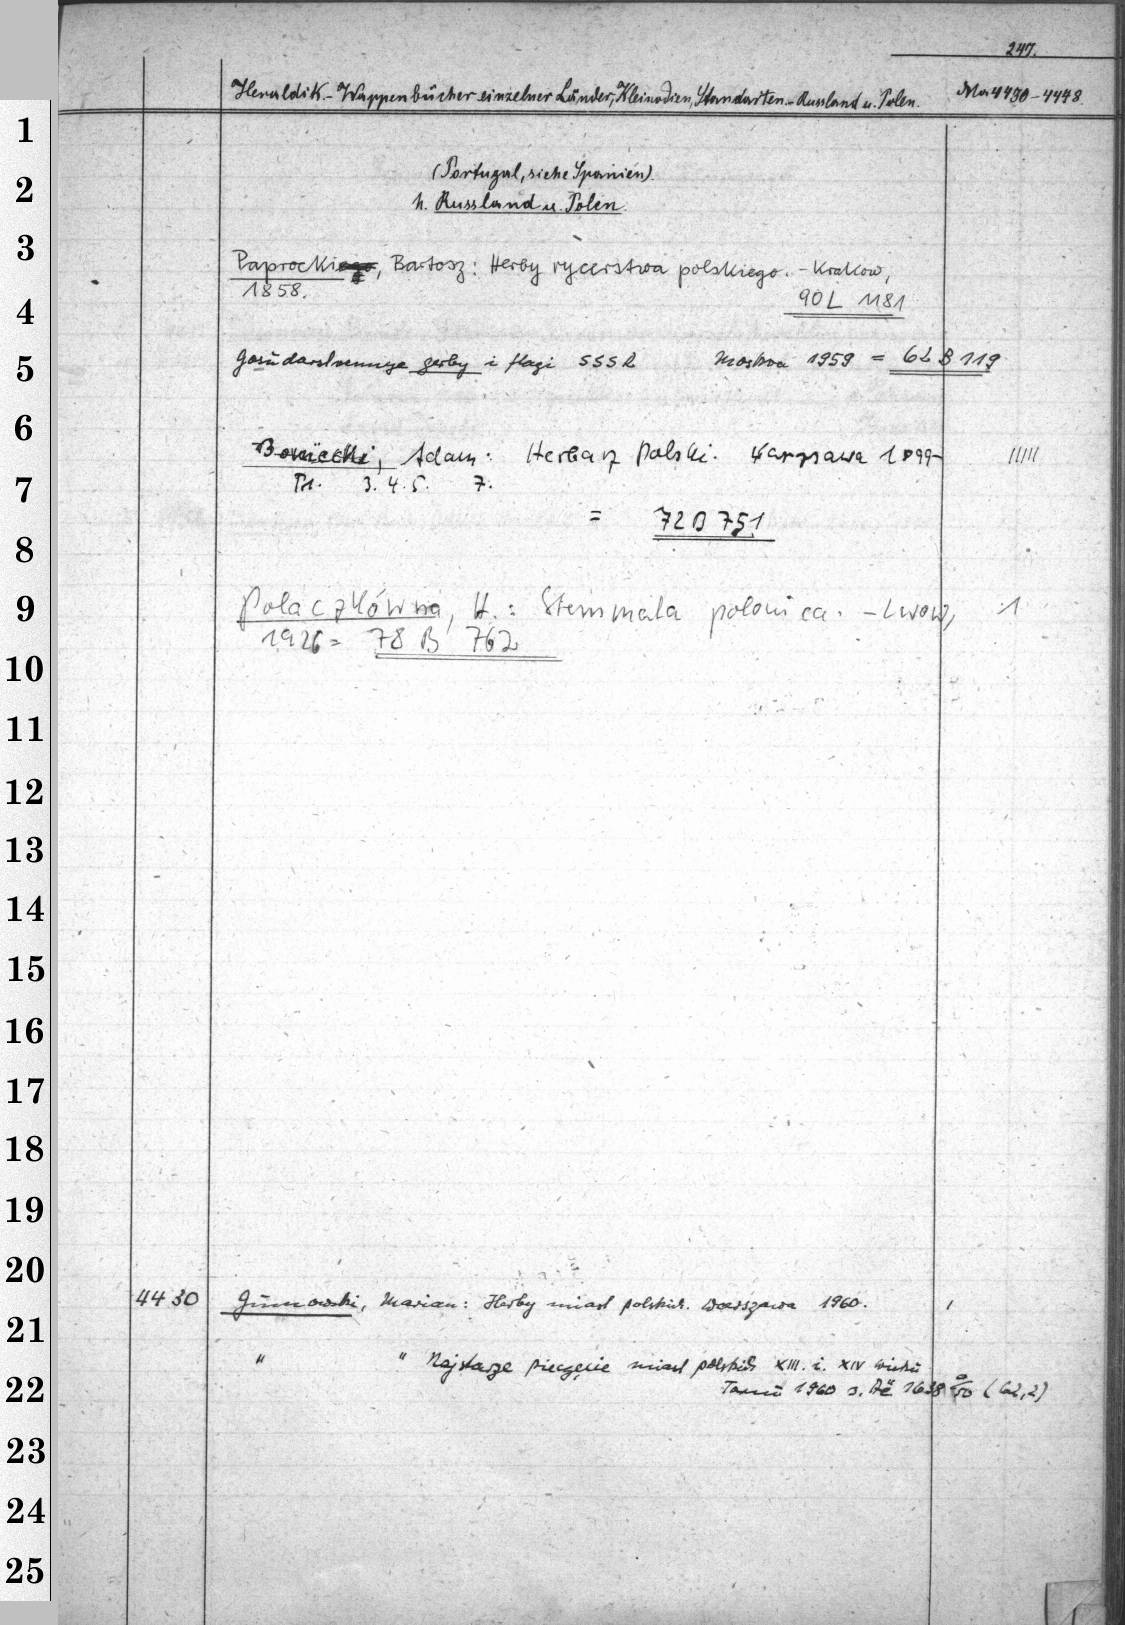 247.
Heraldik.- Wappenbücher einzelner Länder, Kleinodien, Standarten.- Russland u. Polen. Ma 4430-4448
1
(Portugal, siehe Spanien).
2
h. Russland u. Polen.
3
Paprocki, Bartosz: Herby rycerstwa polskiego. - Krakow,
1858.
90 L 1181
4
Gosudarstvennye gerby i flagi SSSR Moskva 1959 = 62 B 119
5
6
Boniecki, Adam: Herbarz Polski. Warszawa 1899- /////
7
3. 4. 5. 7.
= 72 B 751
8
9
Polaczkówna, H.: Stemmata polonica. - Lwow, 1
1926 = 78 B 762
10
11
12
13
14
15
16
17
18
19
20
4430 Gumowski, Marian: Herby miast polskich. Warszawa 1960. /
21
" " Najstarze pieczęcie miast polskich XIII. i. XIV wieku
22
1960 s. 1638 (62,2)
23
24
25